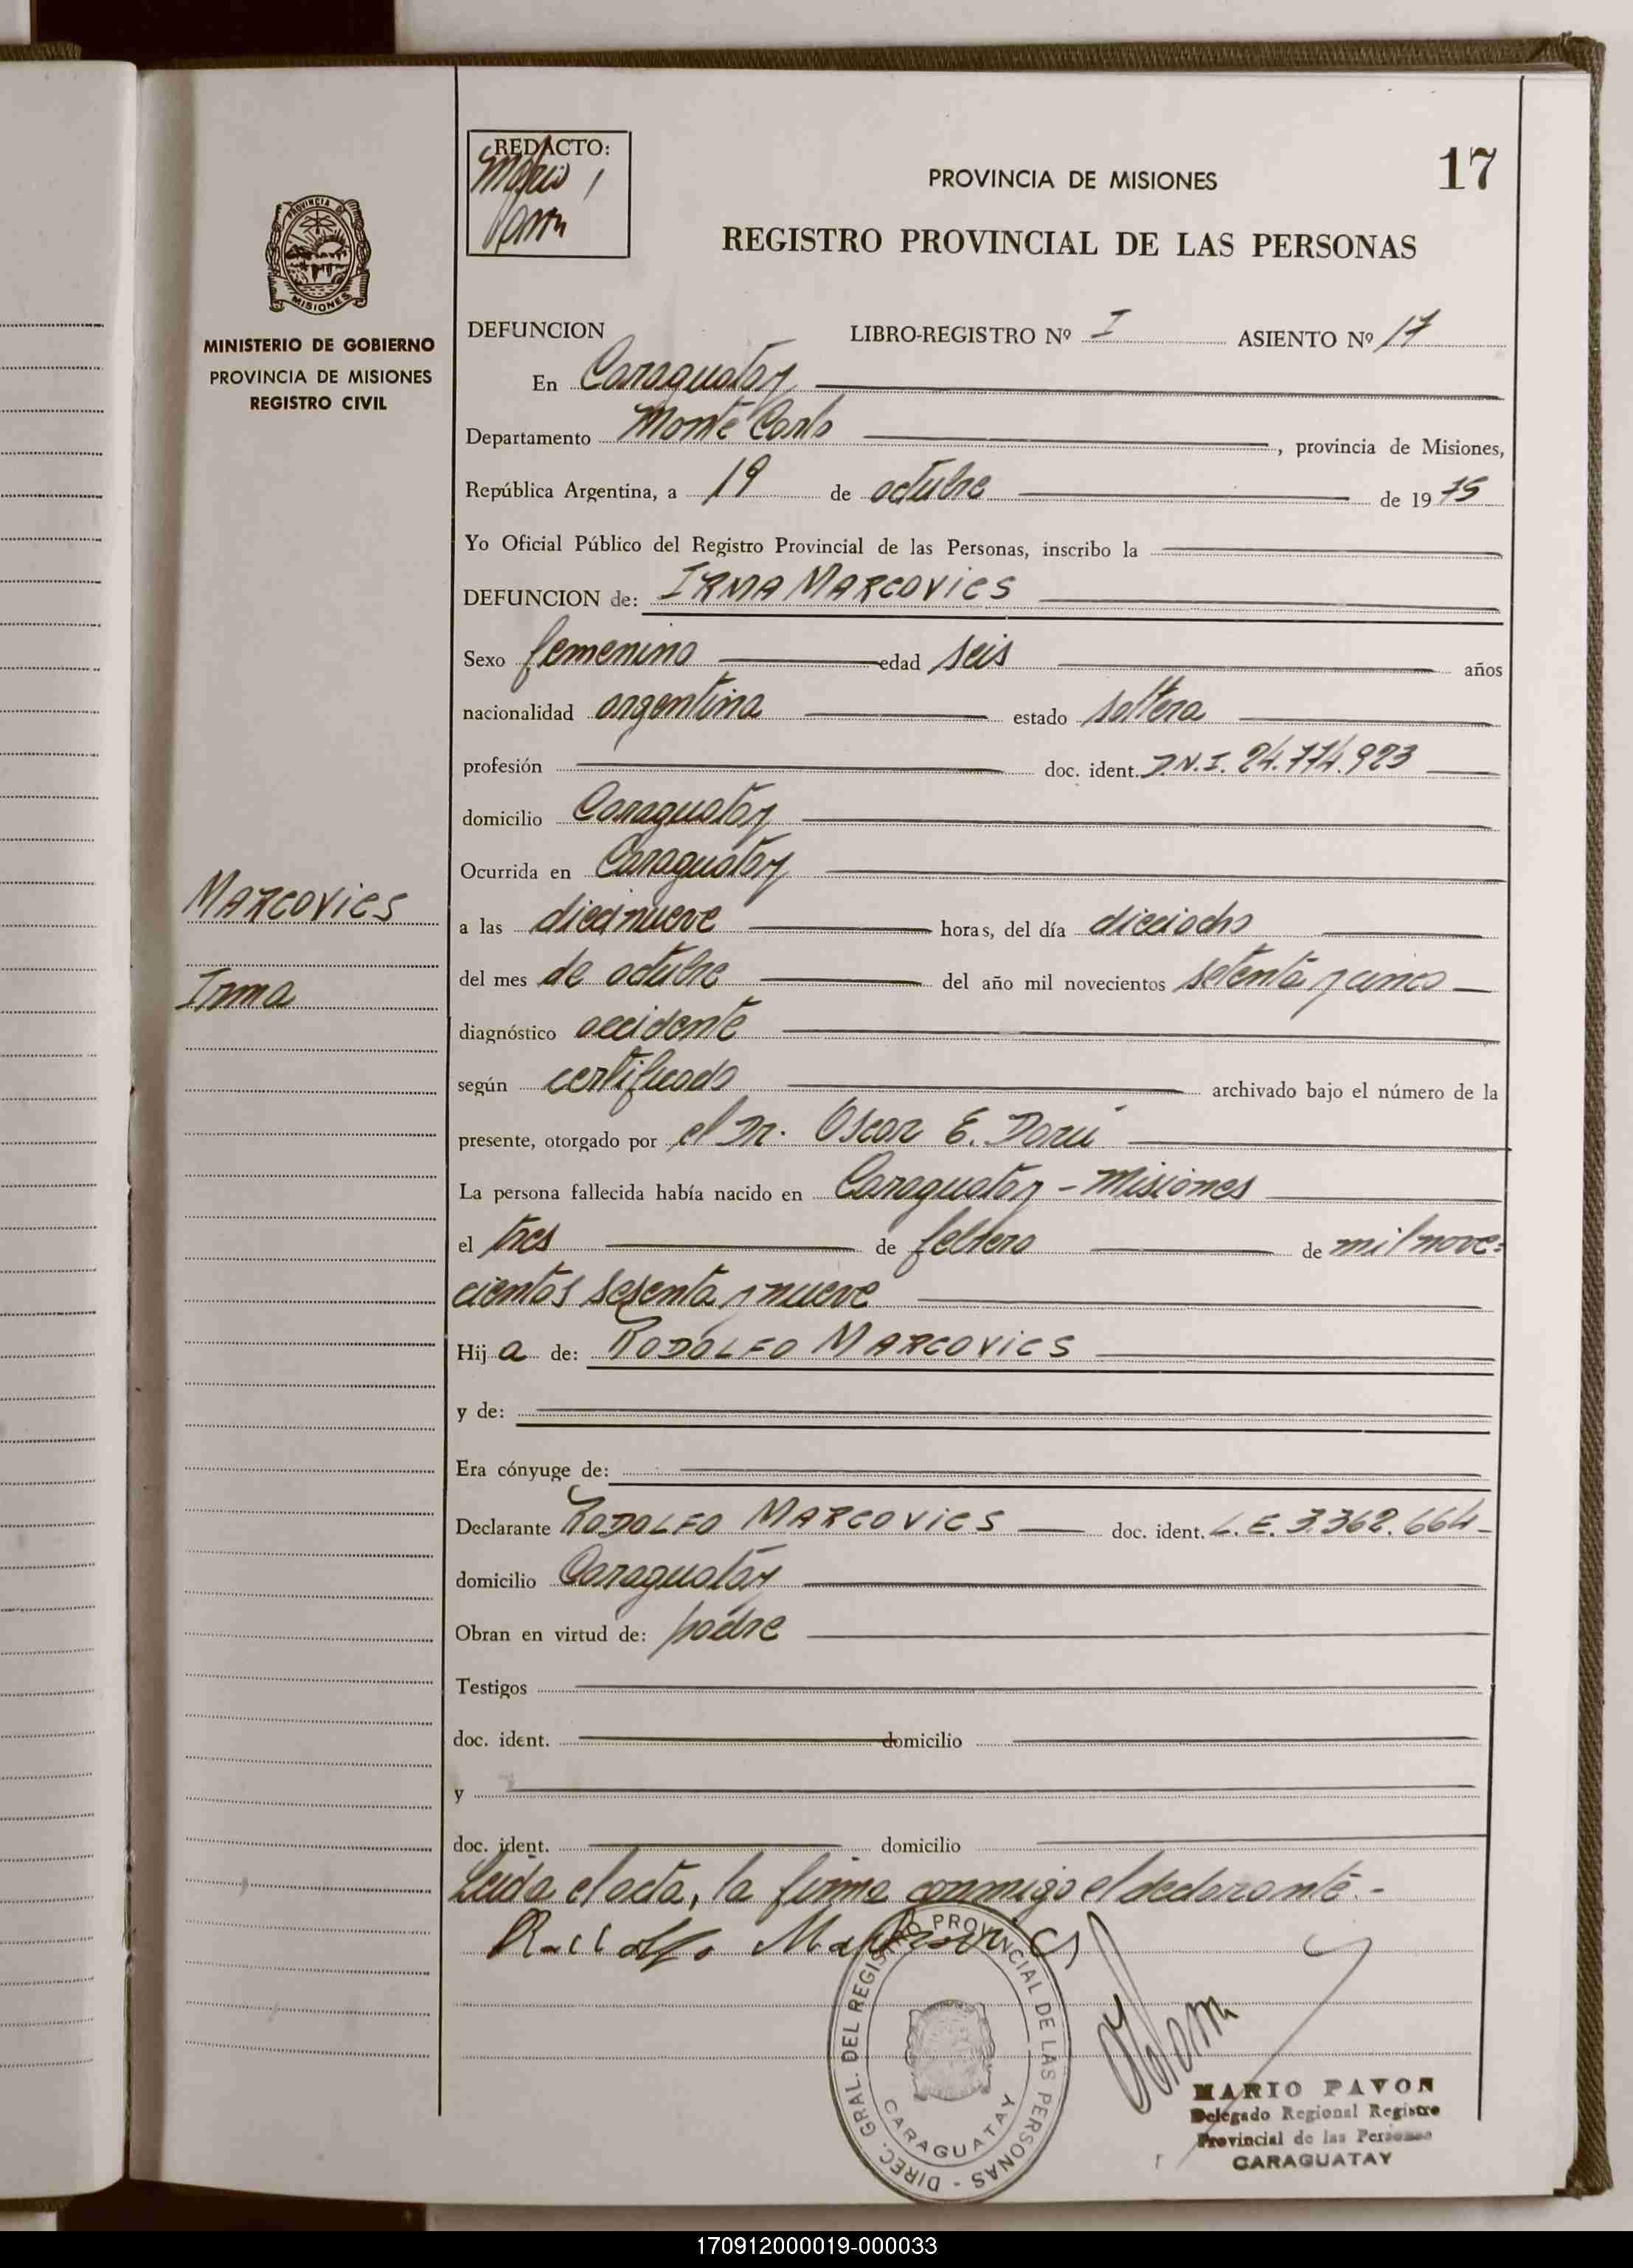 REDACTO:
Mario
Pavon
PROVINCIA DE MISIONES
17
REGISTRO PROVINCIAL DE LAS PERSONAS
PROVINCIA DE
MISIONES
MINISTERIO DE GOBIERNO
PROVINCIA DE MISIONES
REGISTRO CIVIL
DEFUNCION LIBRO-REGISTRO Nº I ASIENTO Nº 17
En Caraguatay
Departamento Monte Carlo, provincia de Misiones,
República Argentina, a 19 de octubre de 1975
Yo Oficial Público del Registro Provincial de las Personas, inscribo la
DEFUNCION de: IRMA MARCOVICS
Sexo femenino edad seis años
nacionalidad argentina estado soltera
profesión doc. ident. D.N.I. 24.774.923
domicilio Caraguatay
Ocurrida en Caraguatay
Marcovics
Irma
a las diecinueve horas, del día dieciocho
del mes de octubre del año mil novecientos setenta y cinco
diagnóstico accidente
según certificado archivado bajo el número de la
presente, otorgado por el Dr. Oscar E.
La persona fallecida había nacido en Caraguatay - Misiones
el tres de febrero de mil nove=
cientos sesenta y nueve
Hija de: RODOLFO MARCOVICS
y de:
Era cónyuge de:
Declarante RODOLFO MARCOVICS doc. ident. L.E. 3.362.664
domicilio Caraguatay
Obran en virtud de: padre
Testigos
doc. ident. domicilio
y
doc. ident. domicilio
Leida el acta, la firma conmigo el declarante.-
Rodolfo Marcovics
DIREC. GRAL. DEL REGISTRO PROVINCIAL DE LAS PERSONAS -
CARAGUATAY
MARIO PAVON
Delegado Regional Registro
Provincial de las Personas
CARAGUATAY
170912000019-000033